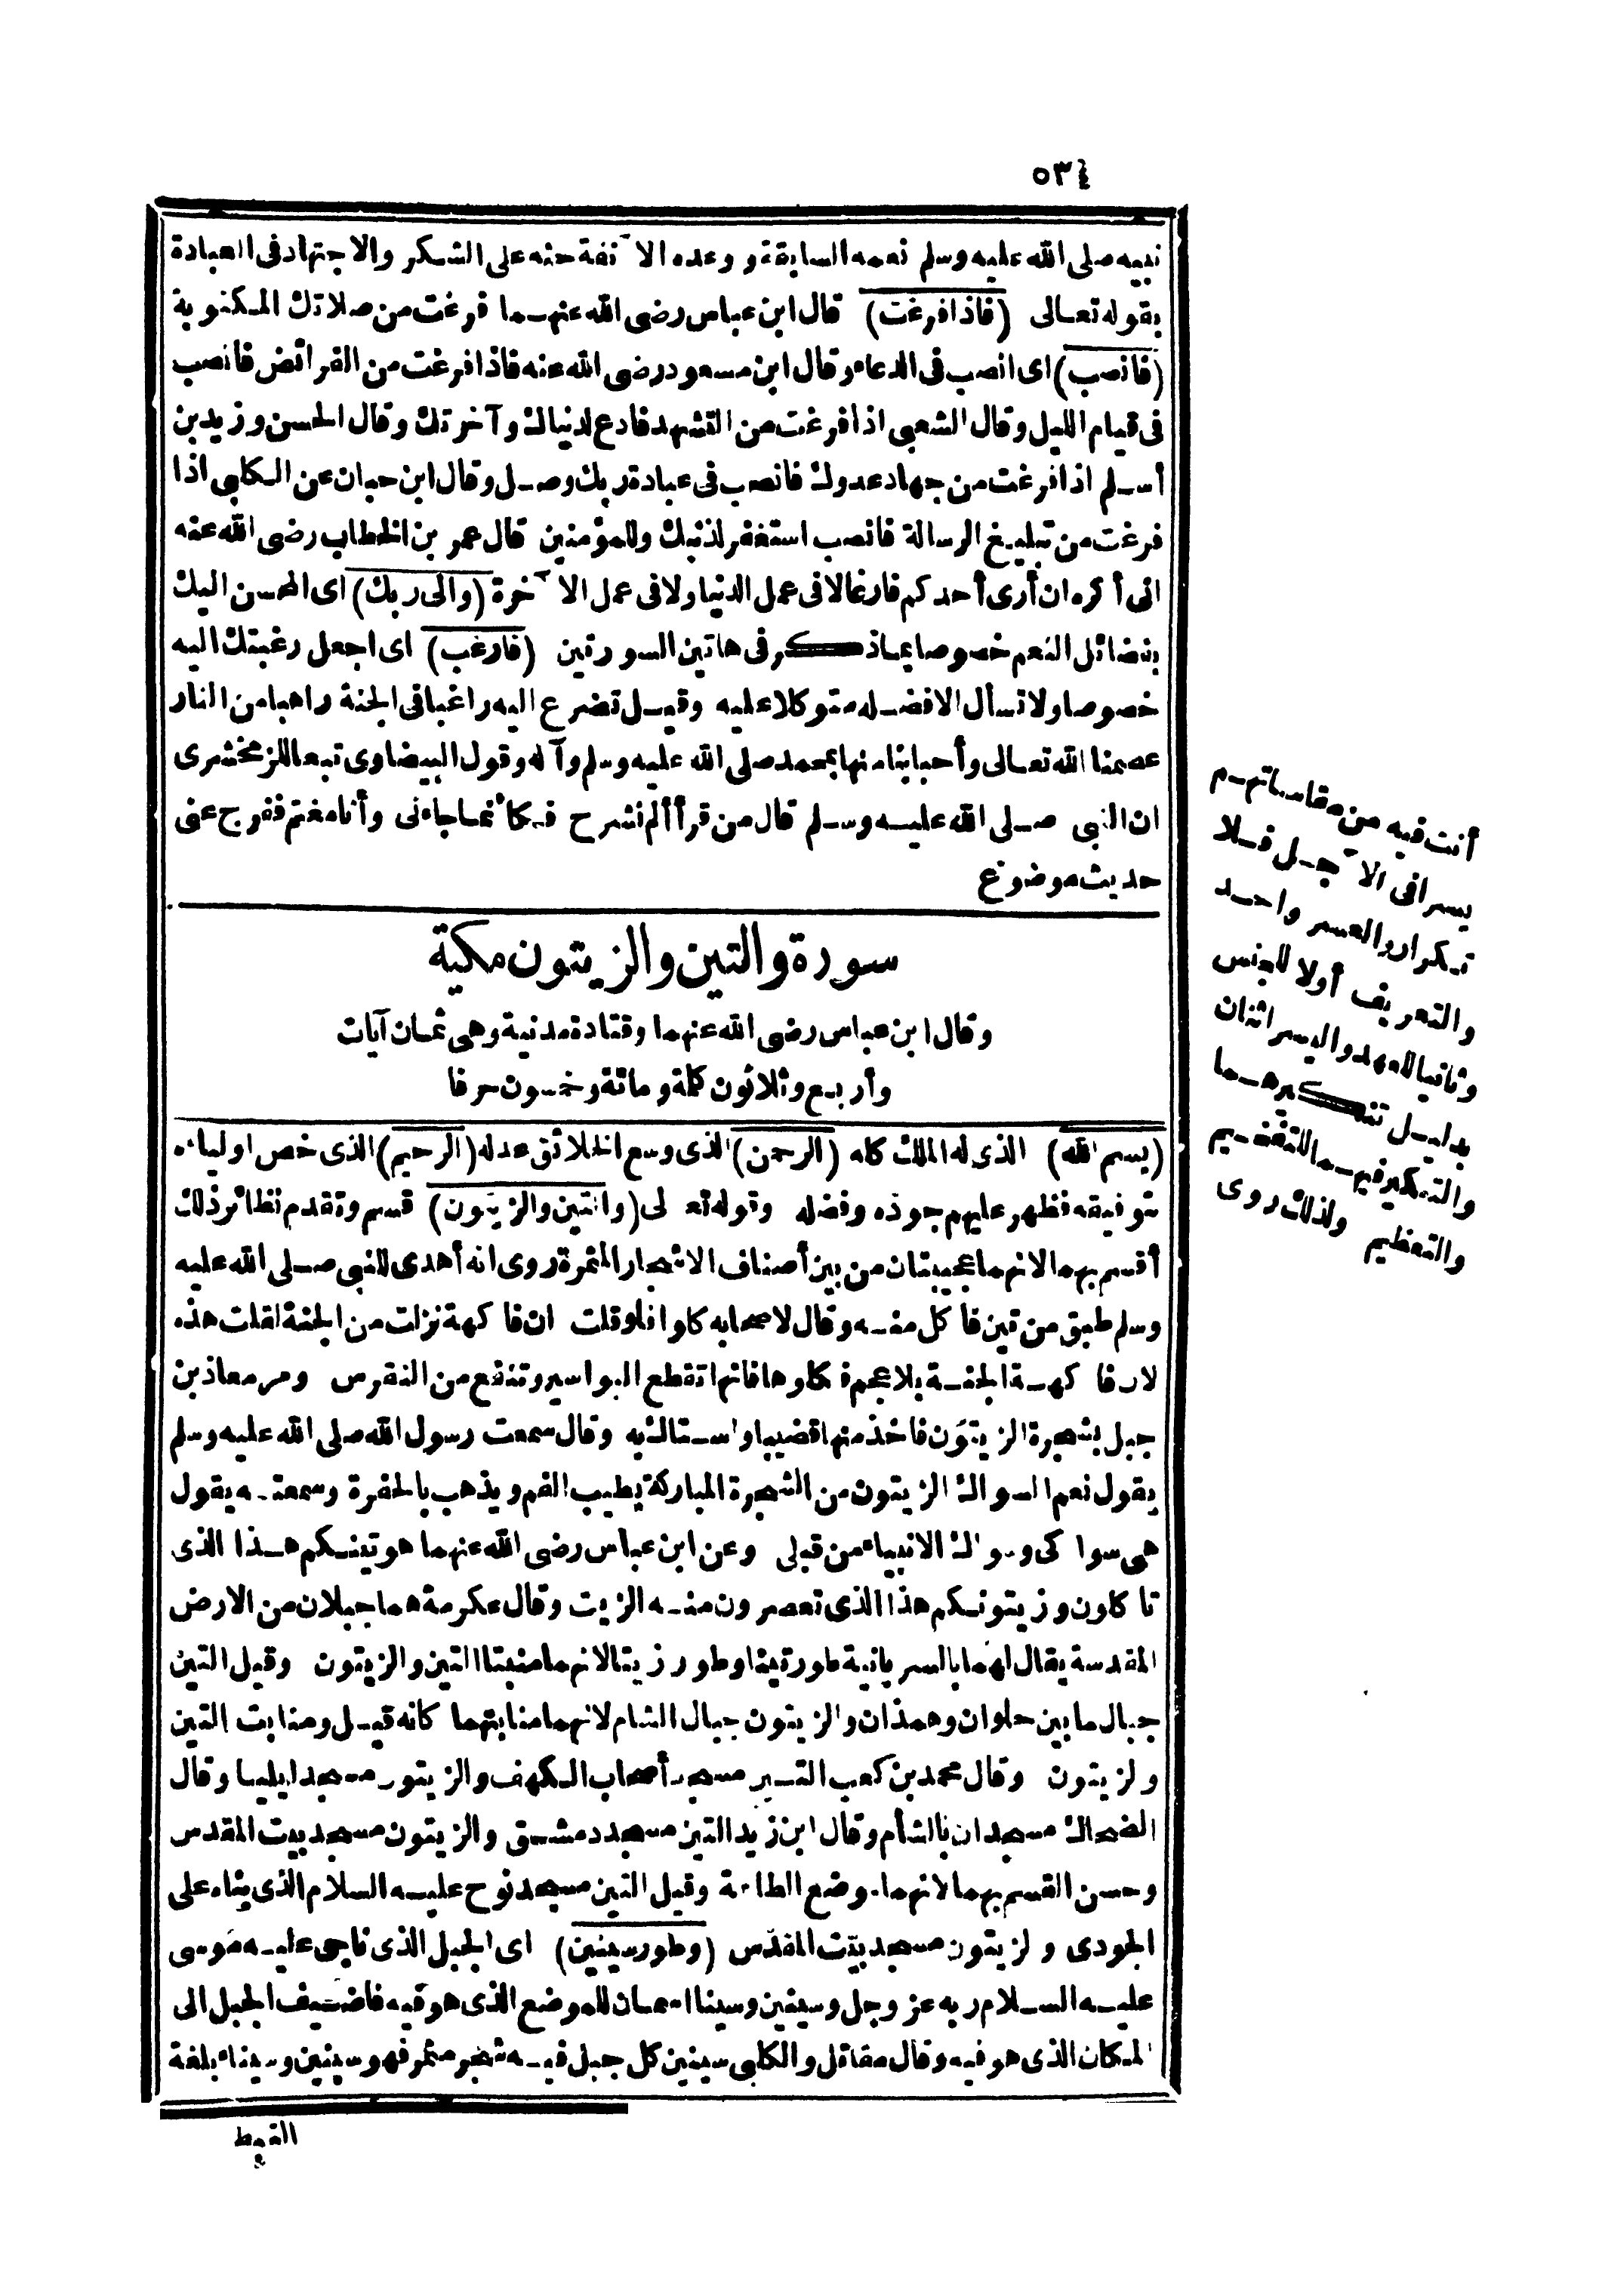 ٥٣٤
نبيه صلى الله عليه وسلم نعمه السابقة ووعده الآنفة حثه على الشكر والاجتهاد فى العبادة
بقوله تعالى (فاذا فرغت) قال ابن عباس رضى الله عنهما فرغت من صلاتك المكتوبة
(فانصب) اى انصب فى الدعاء وقال ابن مسعود رضى الله عنه فاذا فرغت من الفرائض فانصب
فى قيام الليل وقال الشعبى اذا فرغت من التشهد فادع لدنياك وآخرتك وقال الحسن وزيد بن
أسلم اذا فرغت من جهاد عدوك فانصب فى عبادة ربك وصل وقال ابن حبان عن الكلبى اذا
فرغت من تبليغ الرسالة فانصب استغفر لذنبك وللمؤمنين قال عمر بن الخطاب رضى الله عنه
انى أكره ان أرى أحدكم فارغا لا فى عمل الدنيا ولا فى عمل الآخرة (والى ربك) اى المحسن اليك
بفضائل النعم خصوصا بما ذكر فى هاتين السورتين (فارغب) اى اجعل رغبتك اليه
خصوصا ولا تسأل الا فضله متوكلا عليه وقيل تضرع اليه راغبا فى الجنة راهبا من النار
عصمنا الله تعالى وأحبابنا منها بمحمد صلى الله عليه وسلم وآله وقول البيضاوى تبعا للزمخشرى
ان النبى صلى الله عليه وسلم قال من قرأ ألم نشرح فكأنما جاءنى وأنا مغتم ففرج عنى
حديث موضوع
سورة والتين والزيتون مكية
وقال ابن عباس رضى الله عنهما وقتادة مدنية وهى ثمان آيات
وأربع وثلاثون كلمة ومائة وخمسون حرفا
(بسم الله) الذى له الملك كله (الرحمن) الذى وسع الخلائق عدله (الرحيم) الذى خص اولياءه
بتوفيقه فظهر عليهم جوده وفضله وقوله تعالى (والتين والزيتون) قسم وتقدم نظائر ذلك
أقسم بهما لانهما عجيبتان من بين أصناف الاشجار المثمرة روى انه أهدى للنبى صلى الله عليه
وسلم طبق من تين فأكل منه وقال لاصحابه كلوا فلو قلت ان فاكهة نزلت من الجنة لقلت هذه
لان فاكهة الجنة بلا عجم فكلوها فانها تقطع البواسير وتنفع من النقرس ومر معاذ بن
جبل بشجرة الزيتون فاخذ منها قضيبا واستاك به وقال سمعت رسول الله صلى الله عليه وسلم
يقول نعم السواك الزيتون من الشجرة المباركة يطيب الفم ويذهب بالحفرة وسمعته يقول
هى سواكى وسواك الانبياء من قبلى وعن ابن عباس رضى الله عنهما هو تينكم هذا الذى
تأكلون وزيتونكم هذا الذى تعصرون منه الزيت وقال عكرمة هما جبلان من الارض
المقدسة يقال لهما بالسريانية طور تينا وطور زيتا لانهما منبتا التين والزيتون وقيل التين
جبال ما بين حلوان وهمذان والزيتون جبال الشام لانهما منابتهما كانه قيل ومنابت التين
والزيتون وقال محمد بن كعب التين مسجد أصحاب الكهف والزيتون مسجد ايليا وقال
الضحاك مسجدان بالشأم وقال ابن زيد التين مسجد دمشق والزيتون مسجد بيت المقدس
وحسن القسم بهما لانهما موضع الطاعة وقيل التين مسجد نوح عليه السلام الذى بناه على
الجودى والزيتون مسجد بيت المقدس (وطور سينين) اى الجبل الذى ناجى عليه موسى
عليه السلام ربه عز وجل وسينين وسينا اسمان للموضع الذى هو فيه فاضيف الجبل الى
المكان الذى هو فيه وقال مقاتل والكلبى سينين كل جبل فيه شجر مثمر فهو سينين وسيناء بلغة
القبط
أنت فيه من مقاساتهم
يسرا فى الآجل فلا
تكرار والعسر واحد
والتعريف أولا للجنس
وثانيا للعهد واليسر اثنان
بدليل تنكيرهما
والتنكير فيهما للتفخيم
والتعظيم ولذلك روى